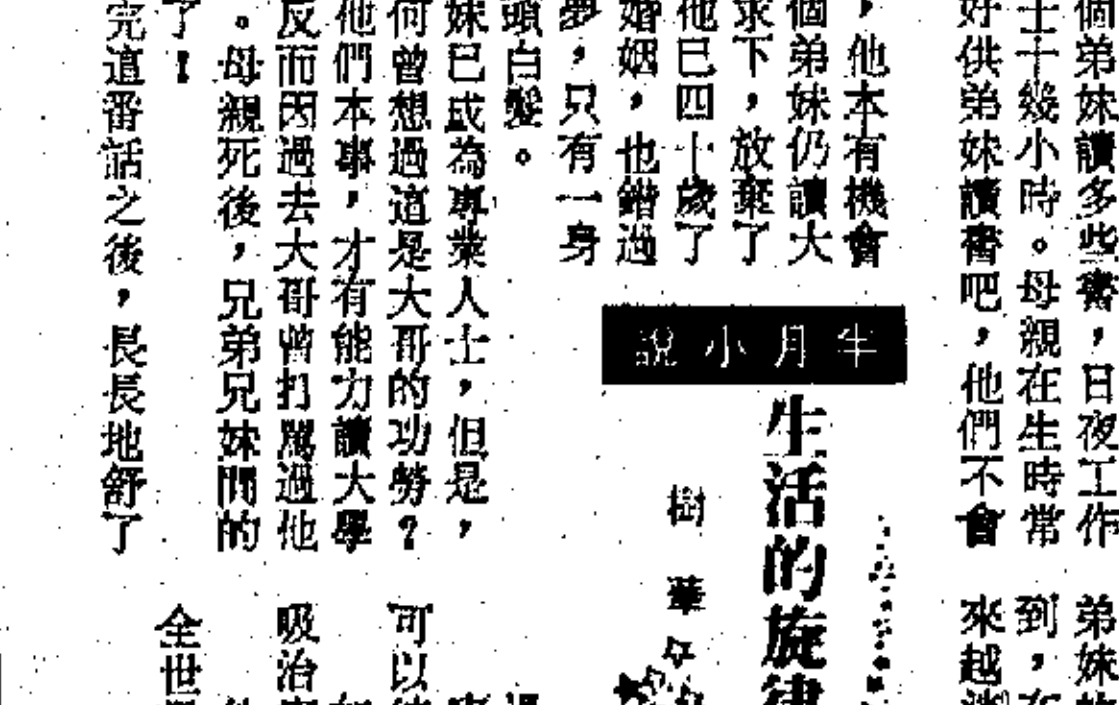 個弟妹讀多些書，日夜工作
士十幾小時。母親在生時常
好供弟妹讀書吧，他們不會
，他本有機會
個弟妹仍讀大
求下，放棄了
他已四十歲了
婚姻，也錯過
夢，只有一身
頭白髮。
妹已成為專業人士，但是，
何曾想過這是大哥的功勞？
他們本事，才有能力讀大學
反而因過去大哥曾打罵過他
。母親死後，兄弟兄妹間的
了！
完這番話之後，長長地舒了
半月小說
生活的旋律
樹華
弟妹
到，在
來越
可以
吸治
全世